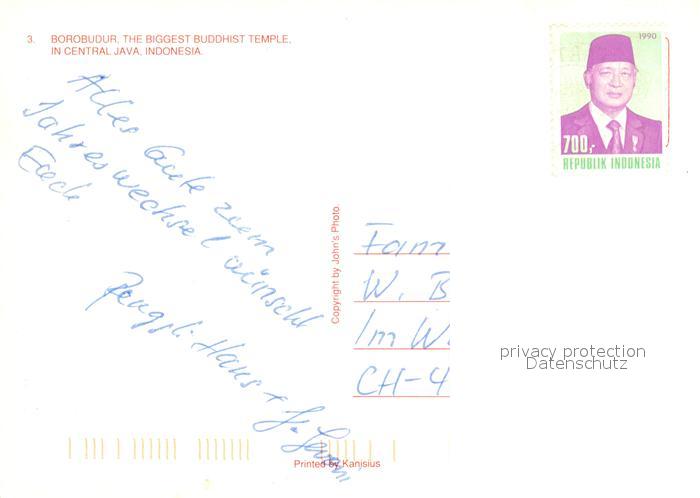 3. BOROBUDUR, THE BIGGEST BUDDHIST TEMPLE,
IN CENTRAL JAVA, INDONESIA.
1990
700,-
REPUBLIK INDONESIA
Alles Gute zum
Jahreswechsel wünscht
Euch
Hans +
Copyright by John's Photo.
Fam
W. B
Im W
CH-4
privacy protection
Datenschutz
Printed by Kanisius